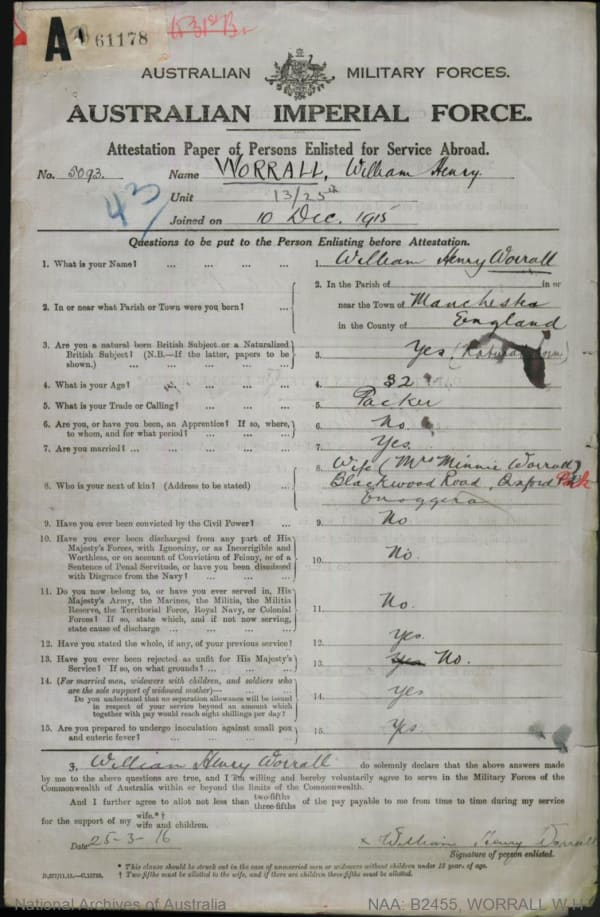 A 61178
AUSTRALIAN MILITARY FORCES.
AUSTRALIAN IMPERIAL FORCE.
Attestation Paper of Persons Enlisted for Service Abroad.
No. 5093. Name WORRALL, William Henry.
43 Unit 13/25th
Joined on 10 Dec. 1915
Questions to be put to the Person Enlisting before Attestation.
1. What is your Name? ... ... ... ... 1. William Henry Worrall
2. In or near what Parish or Town were you born? ... 2. In the Parish of in or
near the Town of Manchester
in the County of England
3. Are you a natural born British Subject or a Naturalized
British Subject? (N.B.—If the latter, papers to be
shown.) ... ... ... ... 3. Yes (Natural Born)
4. What is your Age? ... ... ... 4. 32
5. What is your Trade or Calling? ... ... ... 5. Packer
6. Are you, or have you been, an Apprentice? If so, where,
to whom, and for what period? ... ... ... 6. No.
7. Are you married? ... ... ... ... 7. Yes.
8. Who is your next of kin? (Address to be stated) ... 8. Wife (Mrs Minnie Worrall)
Blackwood Road, Oxford Park
Enoggera
9. Have you ever been convicted by the Civil Power? ... 9. No
10. Have you ever been discharged from any part of His
Majesty's Forces, with Ignominy, or as Incorrigible and
Worthless, or on account of Conviction of Felony, or of a
Sentence of Penal Servitude, or have you been dismissed
with Disgrace from the Navy? ... ... ... 10. No.
11. Do you now belong to, or have you ever served in, His
Majesty's Army, the Marines, the Militia, the Militia
Reserve, the Territorial Force, Royal Navy, or Colonial
Forces? If so, state which, and if not now serving,
state cause of discharge ... ... ... ... 11. No.
12. Have you stated the whole, if any, of your previous service? 12. Yes.
13. Have you ever been rejected as unfit for His Majesty's
Service? If so, on what grounds? ... ... ... 13. Yes No.
14. (For married men, widowers with children, and soldiers who
are the sole support of widowed mother)—
Do you understand that no separation allowance will be issued
in respect of your service beyond an amount which
together with pay would reach eight shillings per day? 14. yes
15. Are you prepared to undergo inoculation against small pox
and enteric fever? ... ... ... ... 15. Yes.
I, William Henry Worrall do solemnly declare that the above answers made
by me to the above questions are true, and I am willing and hereby voluntarily agree to serve in the Military Forces of the
Commonwealth of Australia within or beyond the limits of the Commonwealth.
And I further agree to allot not less than two-fifths three-fifths of the pay payable to me from time to time during my service
for the support of my wife.*† wife and children.
Date 25-3-16 x William Henry Worrall
Signature of person enlisted.
* This clause should be struck out in the case of unmarried men or widowers without children under 18 years of age.
† Two-fifths must be allotted to the wife, and if there are children three-fifths must be allotted.
National Archives of Australia NAA: B2455, WORRALL W H